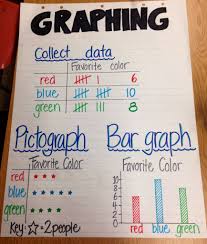 GRAPHING
Collect data
Favorite Color
red 6
blue 10
green 8
Pictograph
Favorite Color
red
blue
green
Key: ☆ = 2 people
Bar graph
Favorite Color
10
8
6
4
2
0
red blue green